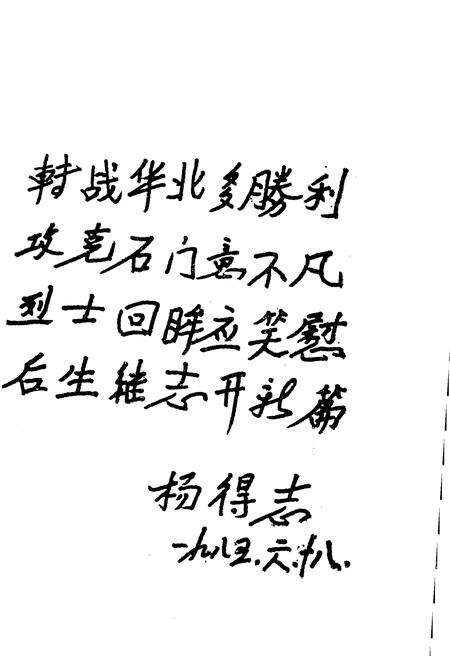 轉战华北多勝利
攻克石门意不凡
烈士回眸应笑慰
后生继志开新篇
杨得志
一九八五.六.十八.